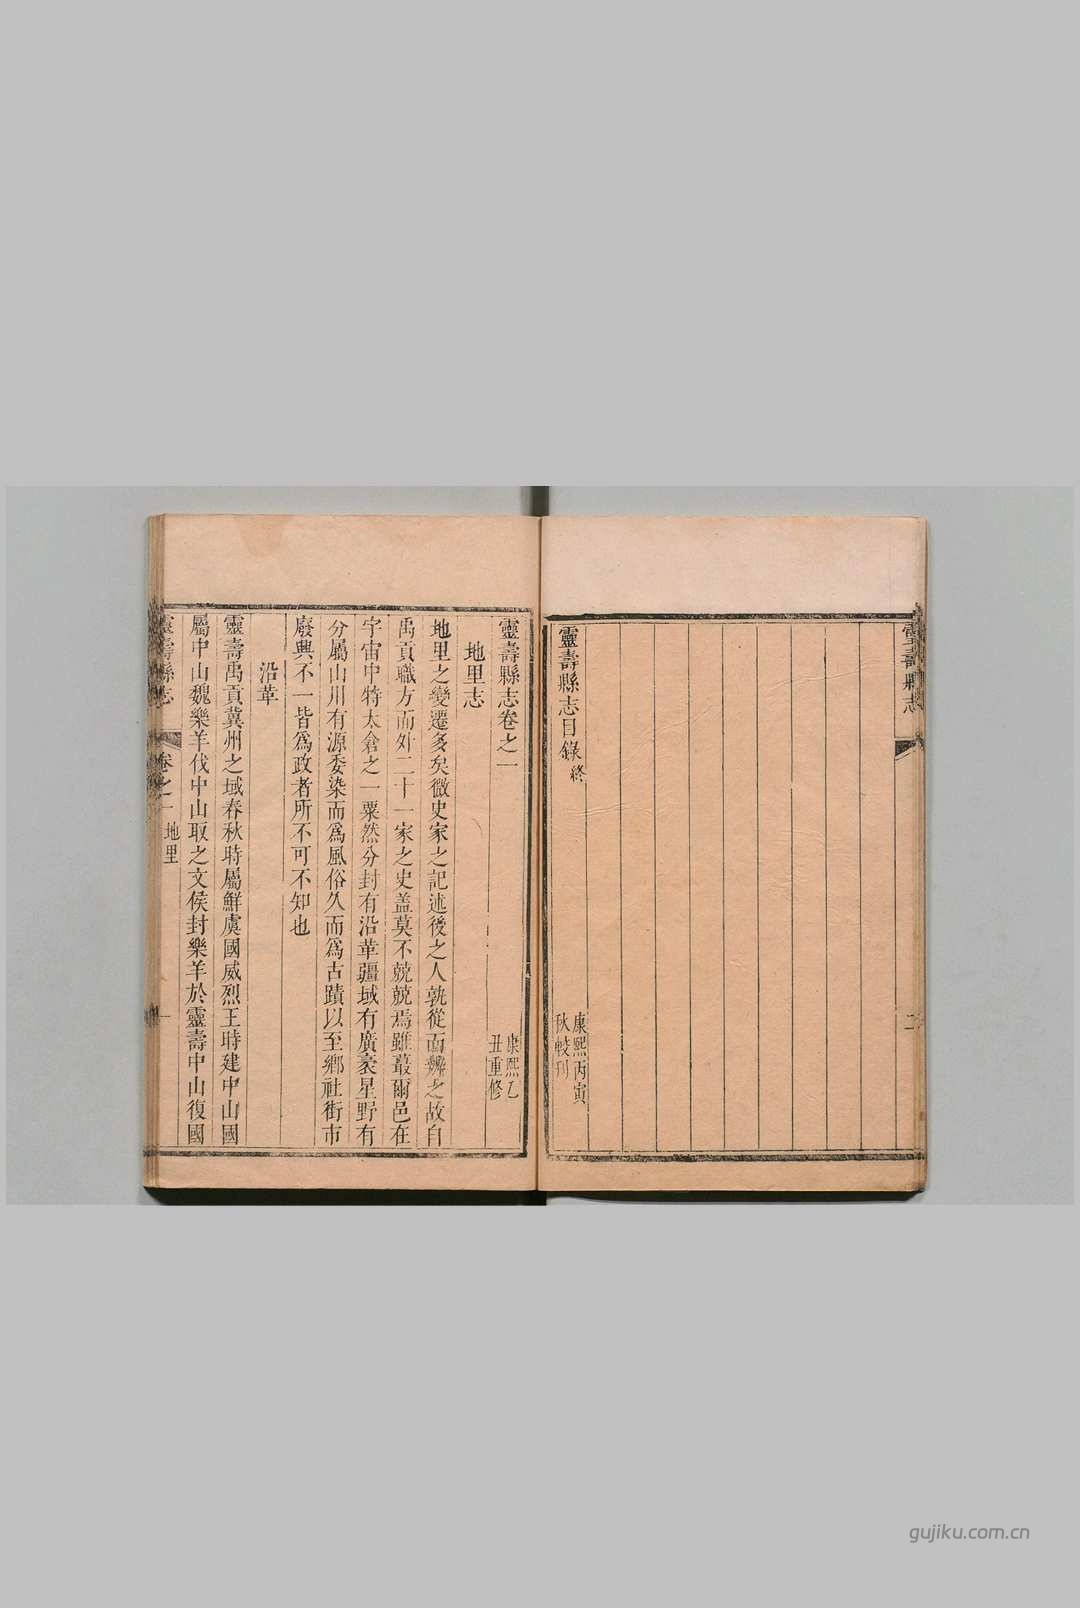 靈壽縣志
二
靈壽縣志目錄終
康熙丙寅
秋較刊
靈壽縣志卷之一
康熙乙
丑重修
地里志
地里之變遷多矣微史家之記述後之人孰從而辨之故自
禹貢職方而外二十一家之史蓋莫不兢兢焉雖蕞爾邑在
宇宙中特太倉之一粟然分封有沿革疆域有廣袤星野有
分屬山川有源委染而為風俗久而為古蹟以至鄉社街市
廢興不一皆為政者所不可不知也
沿革
靈壽禹貢冀州之域春秋時屬鮮虞國威烈王時建中山國
屬中山魏樂羊伐中山取之文侯封樂羊於靈壽中山復國
靈壽縣志
卷之一
地里
一
gujiku.com.cn